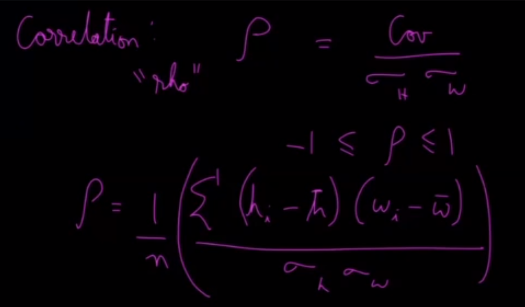 Correlation: ρ = Cov / σ_H σ_W
"rho"
-1 ≤ ρ ≤ 1
ρ = 1/n ( Σ (h_i - h̄) (w_i - w̄) / σ_h σ_w )